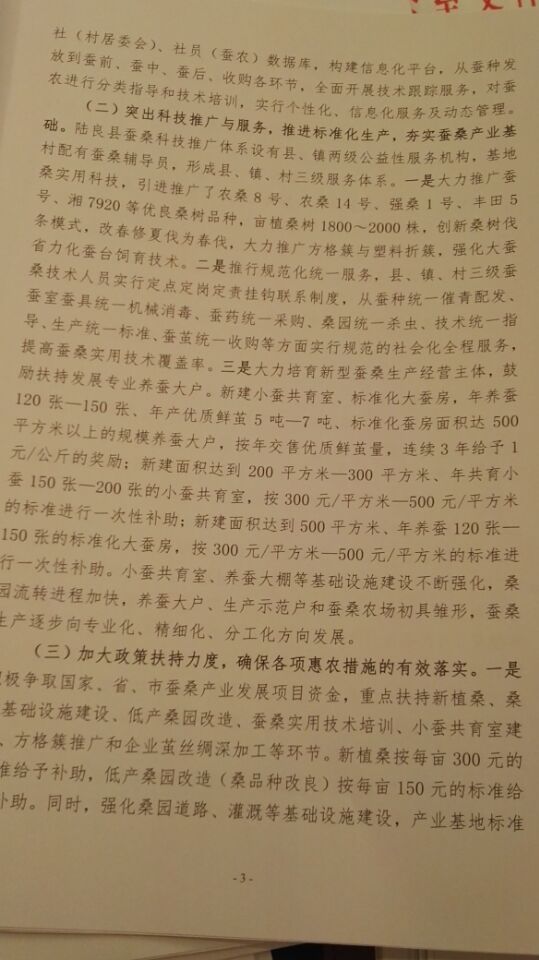 社（村居委会）、社员（蚕农）数据库，构建信息化平台，从蚕种发
放到蚕前、蚕中、蚕后、收购各环节，全面开展技术跟踪服务，对蚕
农进行分类指导和技术培训，实行个性化、信息化服务及动态管理。
（二）突出科技推广与服务，推进标准化生产，夯实蚕桑产业基
础。陆良县蚕桑科技推广体系设有县、镇两级公益性服务机构，基地
村配有蚕桑辅导员，形成县、镇、村三级服务体系。一是大力推广蚕
桑实用科技，引进推广了农桑 8 号、农桑 14 号、强桑 1 号、丰田 5
号、湘 7920 等优良桑树品种，亩植桑树 1800～2000 株，创新桑树伐
条模式，改春修夏伐为春伐，大力推广方格簇与塑料折簇，强化大蚕
省力化蚕台饲育技术。二是推行规范化统一服务，县、镇、村三级蚕
桑技术人员实行定点定岗定责挂钩联系制度，从蚕种统一催青配发、
蚕室蚕具统一机械消毒、蚕药统一采购、桑园统一杀虫、技术统一指
导、生产统一标准、蚕茧统一收购等方面实行规范的社会化全程服务，
提高蚕桑实用技术覆盖率。三是大力培育新型蚕桑生产经营主体，鼓
励扶持发展专业养蚕大户。新建小蚕共育室、标准化大蚕房，年养蚕
120 张—150 张、年产优质鲜茧 5 吨—7 吨、标准化蚕房面积达 500
平方米以上的规模养蚕大户，按年交售优质鲜茧量，连续 3 年给予 1
元/公斤的奖励；新建面积达到 200 平方米—300 平方米、年共育小
蚕 150 张—200 张的小蚕共育室，按 300 元/平方米—500 元/平方米
的标准进行一次性补助；新建面积达到 500 平方米、年养蚕 120 张—
150 张的标准化大蚕房，按 300 元/平方米—500 元/平方米的标准进
行一次性补助。小蚕共育室、养蚕大棚等基础设施建设不断强化，桑
园流转进程加快，养蚕大户、生产示范户和蚕桑农场初具雏形，蚕桑
生产逐步向专业化、精细化、分工化方向发展。
（三）加大政策扶持力度，确保各项惠农措施的有效落实。一是
积极争取国家、省、市蚕桑产业发展项目资金，重点扶持新植桑、桑
基础设施建设、低产桑园改造、蚕桑实用技术培训、小蚕共育室建
、方格簇推广和企业茧丝绸深加工等环节。新植桑按每亩 300 元的
准给予补助，低产桑园改造（桑品种改良）按每亩 150 元的标准给
补助。同时，强化桑园道路、灌溉等基础设施建设，产业基地标准
- 3 -